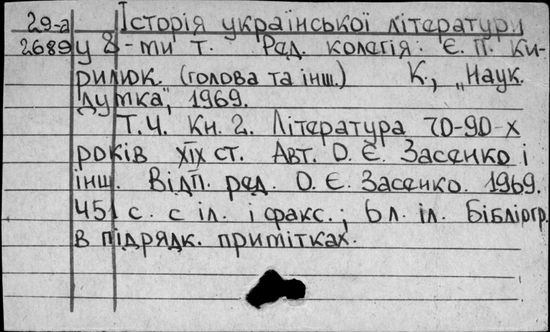 29-а Історія української літератури
2689 у 8-ми т. Ред. колегія: Є. П. Ки-
рилюк. (голова та інш.) К., „Наук.
думка", 1969.
Т.4. Кн. 2. Література 70-90-х
років XIX ст. Авт. О. Є. Засенко і
інш. Відп. ред. О. Є. Засенко. 1969.
451 с. с іл. і факс.; 6 л. іл. Бібліогр.
в підрядк. примітках.